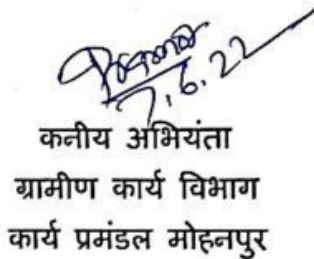 7.6.22
कनीय अभियंता
ग्रामीण कार्य विभाग
कार्य प्रमंडल मोहनपुर